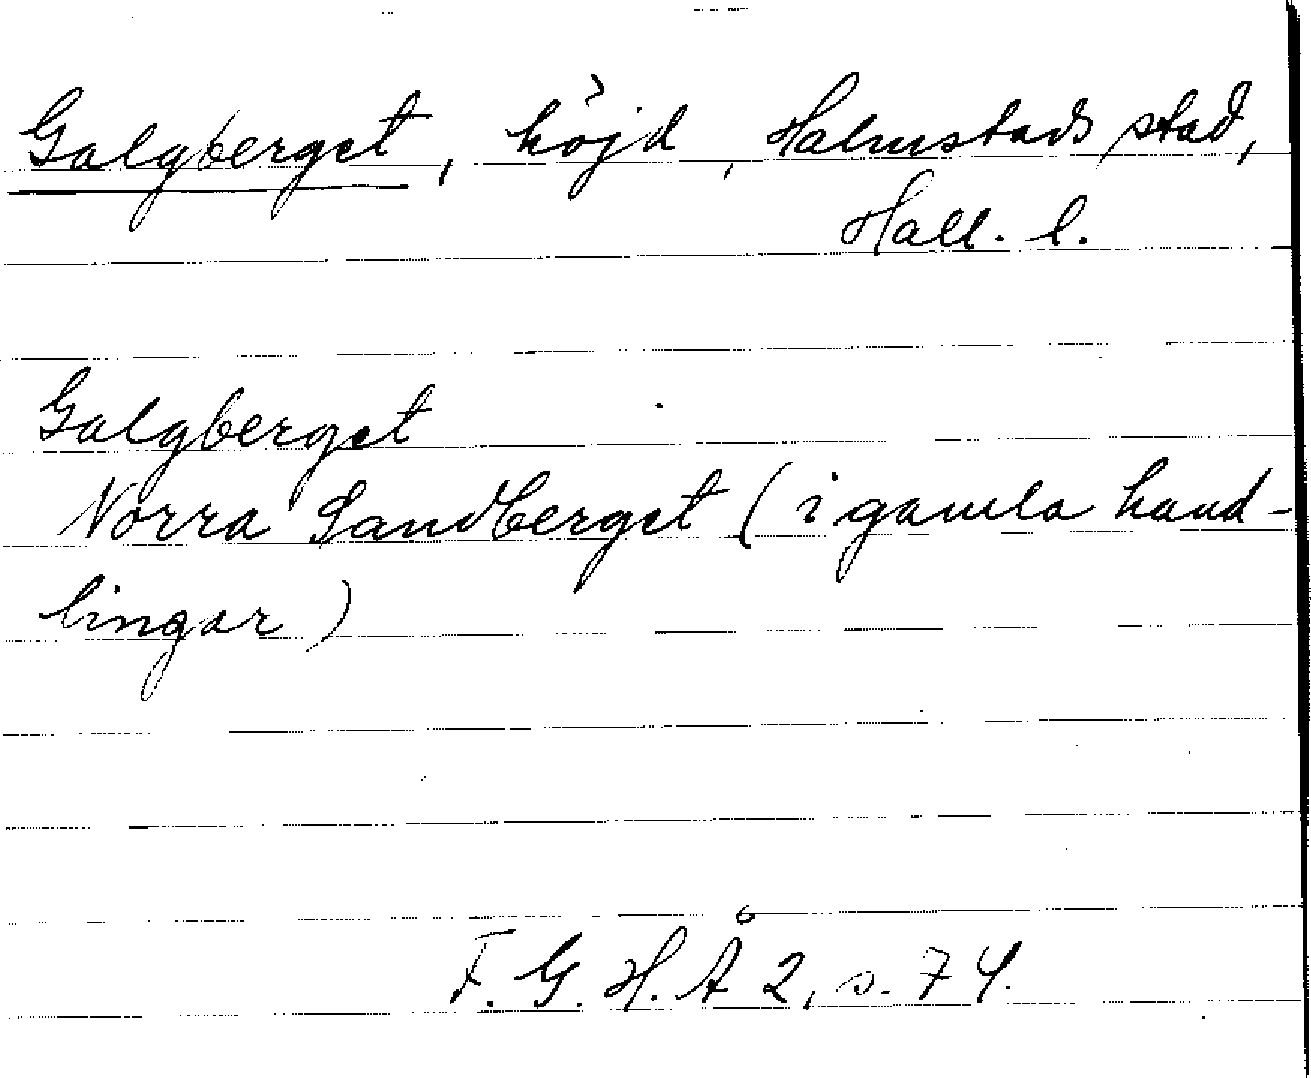 Galgberget, höjd, Halmstads stad,
Hall. l.
Galgberget
Norra Sandberget (i gamla hand-
lingar)
F. G. H. Å 2, s. 74.